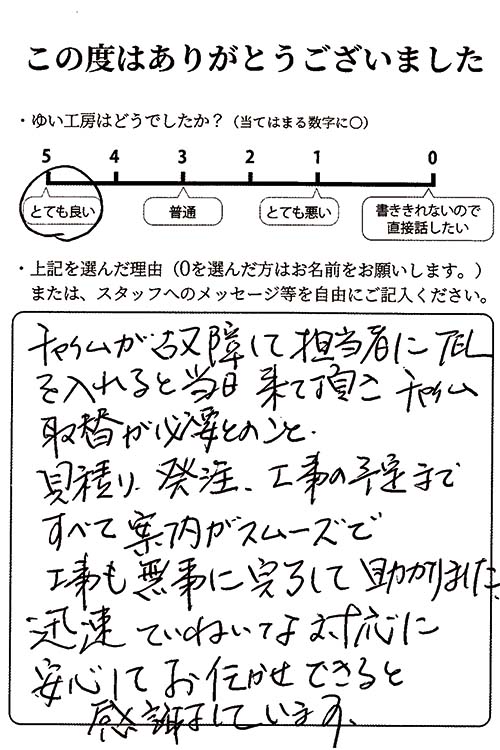 この度はありがとうございました
・ゆい工房はどうでしたか？（当てはまる数字に○）
5 4 3 2 1 0
とても良い 普通 とても悪い 書ききれないので
直接話したい
・上記を選んだ理由（0を選んだ方はお名前をお願いします。）
または、スタッフへのメッセージ等を自由にご記入ください。
チャイムが故障して担当者にTEL
を入れると当日来て頂き チャイム
取替が必要とのこと.
見積り、発注、工事の予定まで
すべて案内がスムーズで
工事も無事に完了して助かりました。
迅速 ていねいな対応に
安心してお任せできると
感謝しています。